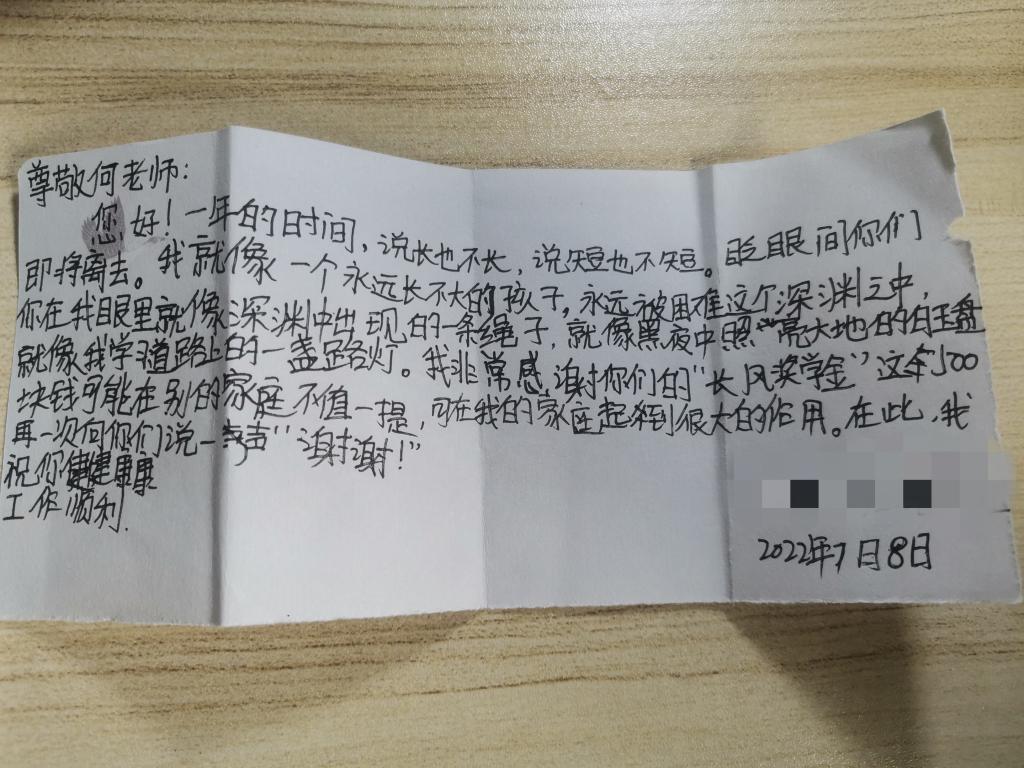 尊敬何老师:
您好!一年的时间,说长也不长,说短也不短。眨眼间你们
即将离去。我就像一个永远长不大的孩子,永远被困难这个深渊之中,
你在我眼里就像深渊中出现的一条绳子,就像黑夜中照亮大地的白玉盘
就像我学习道路上的一盏路灯。我非常感谢你们的"长风奖学金"这笔500
块钱可能在别的家庭不值一提,可在我的家庭起到很大的作用。在此,我
再一次向你们说一声"谢谢!"
祝你健康
工作顺利.
2022年7月8日